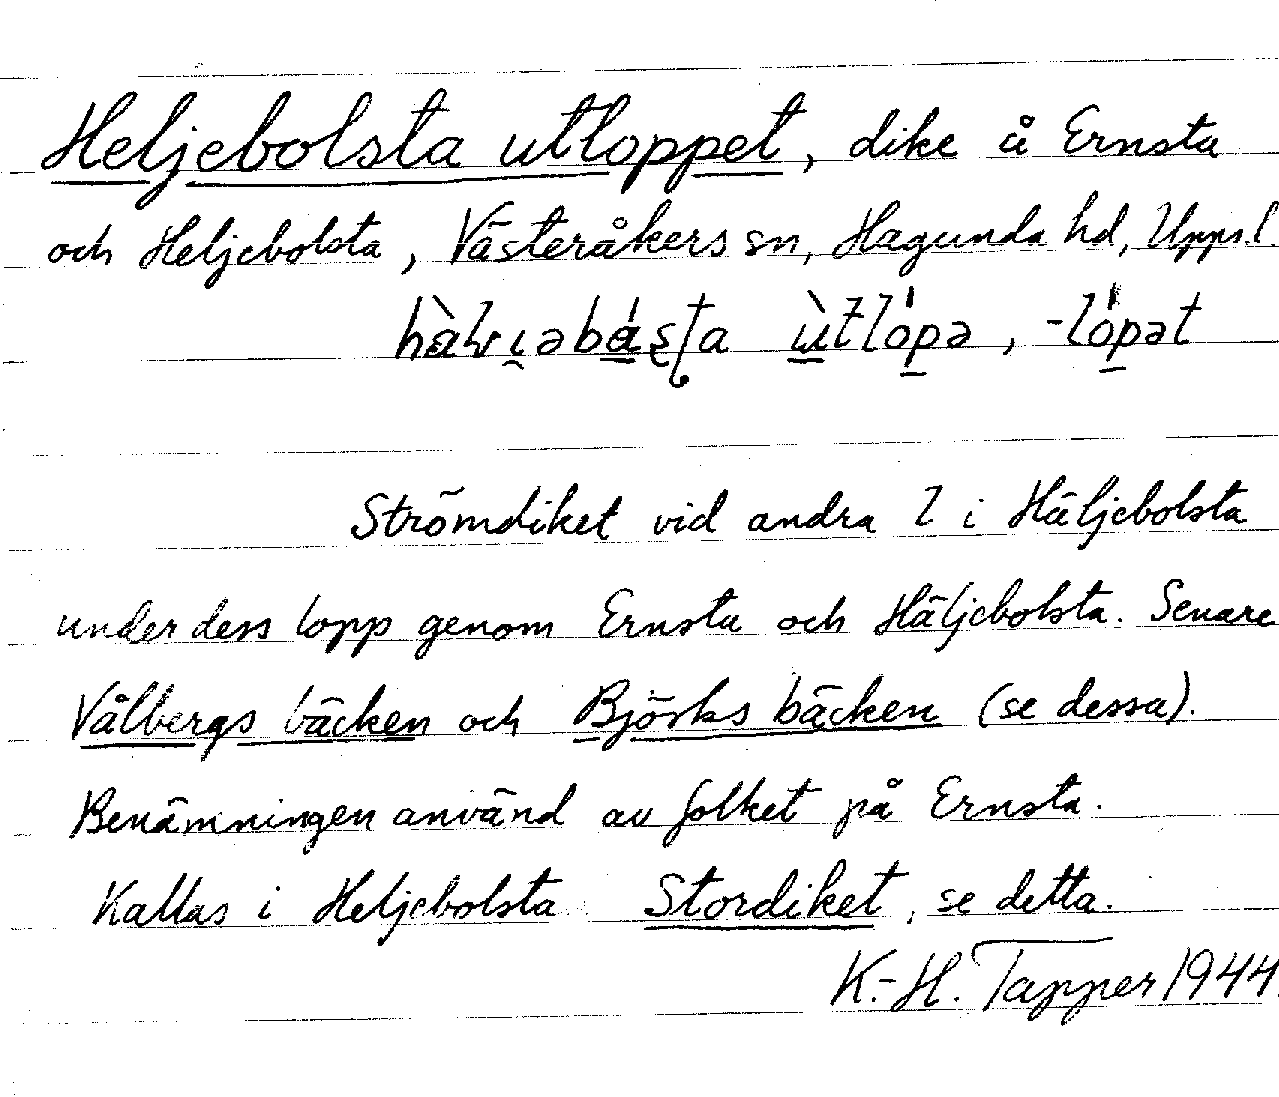 Heljebolsta utloppet, dike å Ernsta
och Heljebolsta, Västeråkers sn, Hagunda hd, Upps. l.
-lópət
Strömdiket vid andra l i Häljebolsta
under dess lopp genom Ernsta och Häljebolsta. Senare
Vålbergs bäcken och Björks bäcken (se dessa).
Benämningen använd av folket på Ernsta.
Kallas i Heljebolsta Stordiket, se detta.
K.-H. Tapper 1944.